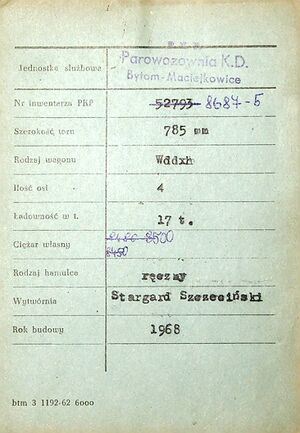 P K P
Jednostka służbowa Parowozownia K.D.
Bytom-Maciejkowice
Nr inwentarza PKP 52793 8687-5
Szerokość toru 785 mm
Rodzaj wagonu Wddxh
Ilość osi 4
Ładowność w t. 17 t.
Ciężar własny 8480 8500
8450
Rodzaj hamulca ręczny
Wytwórnia Stargard Szczeciński
Rok budowy 1968
btm 3 1192-62 6ooo